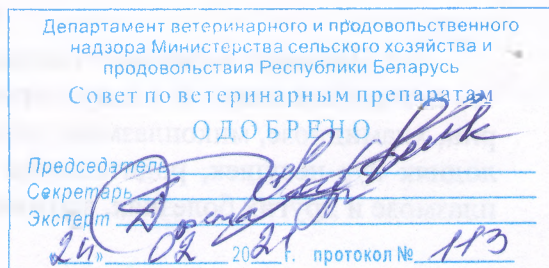 Департамент ветеринарного и продовольственного
надзора Министерства сельского хозяйства и
продовольствия Республики Беларусь
Совет по ветеринарным препаратам
ОДОБРЕНО
Председатель
Секретарь
Эксперт
» 02 2021 г. протокол № 113